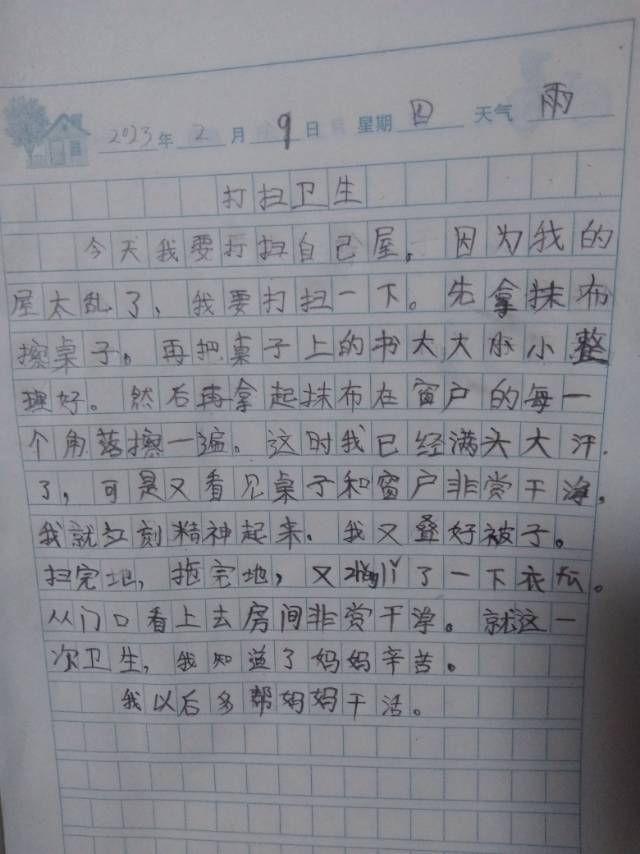 2023年 2月 9日 星期 四 天气 雨
打扫卫生
今天我要打扫自己屋。因为我的
屋太乱了，我要打扫一下。先拿抹布
擦桌子。再把桌子上的书大大小小整
理好。然后再拿起抹布在窗户的每一
个角落擦一遍。这时我已经满头大汗
了，可是又看见桌子和窗户非常干净，
我就立刻精神起来。我又叠好被子。
扫完地，拖完地，又zhěnglǐ了一下衣
从门口看上去房间非常干净。就这一
次卫生，我知道了妈妈辛苦。
我以后多帮妈妈干活。